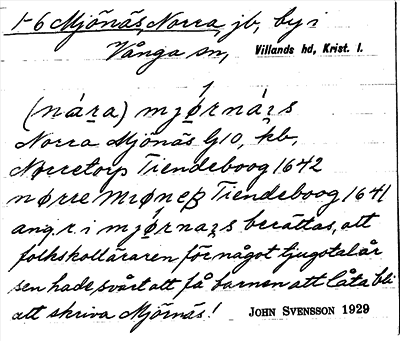 1-6 Mjönäs, Norra, jb, by i
Vånga sn, Villands hd, Krist. l.
(nára) mjǿrnáꝛs
Norra Mjönäs G10, kb,
Norretorp Tiendeboog 1642
nørre Miøneß Tiendeboog 1641
ang. r. i mjǿrnaꝛs berättas, att
folkskolläraren för något tjugotal år
sen hade svårt att få barnen att låta bli
att skriva Mjörnäs! JOHN SVENSSON 1929